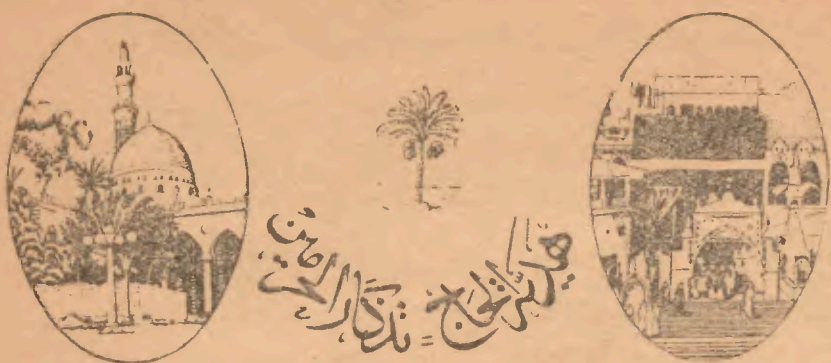 هدية الحاج = تذكار الحرمين